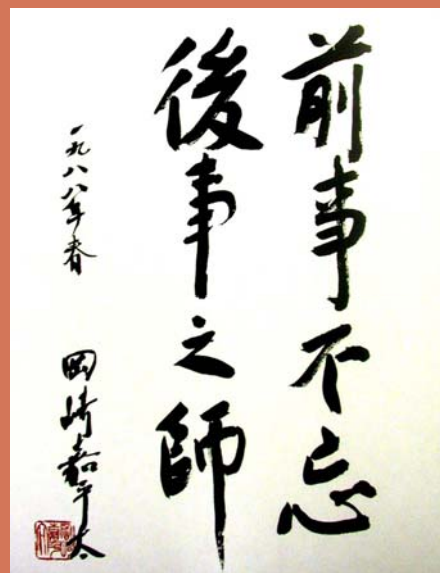 前事不忘
後事之師
一九八八年春
岡崎嘉平太